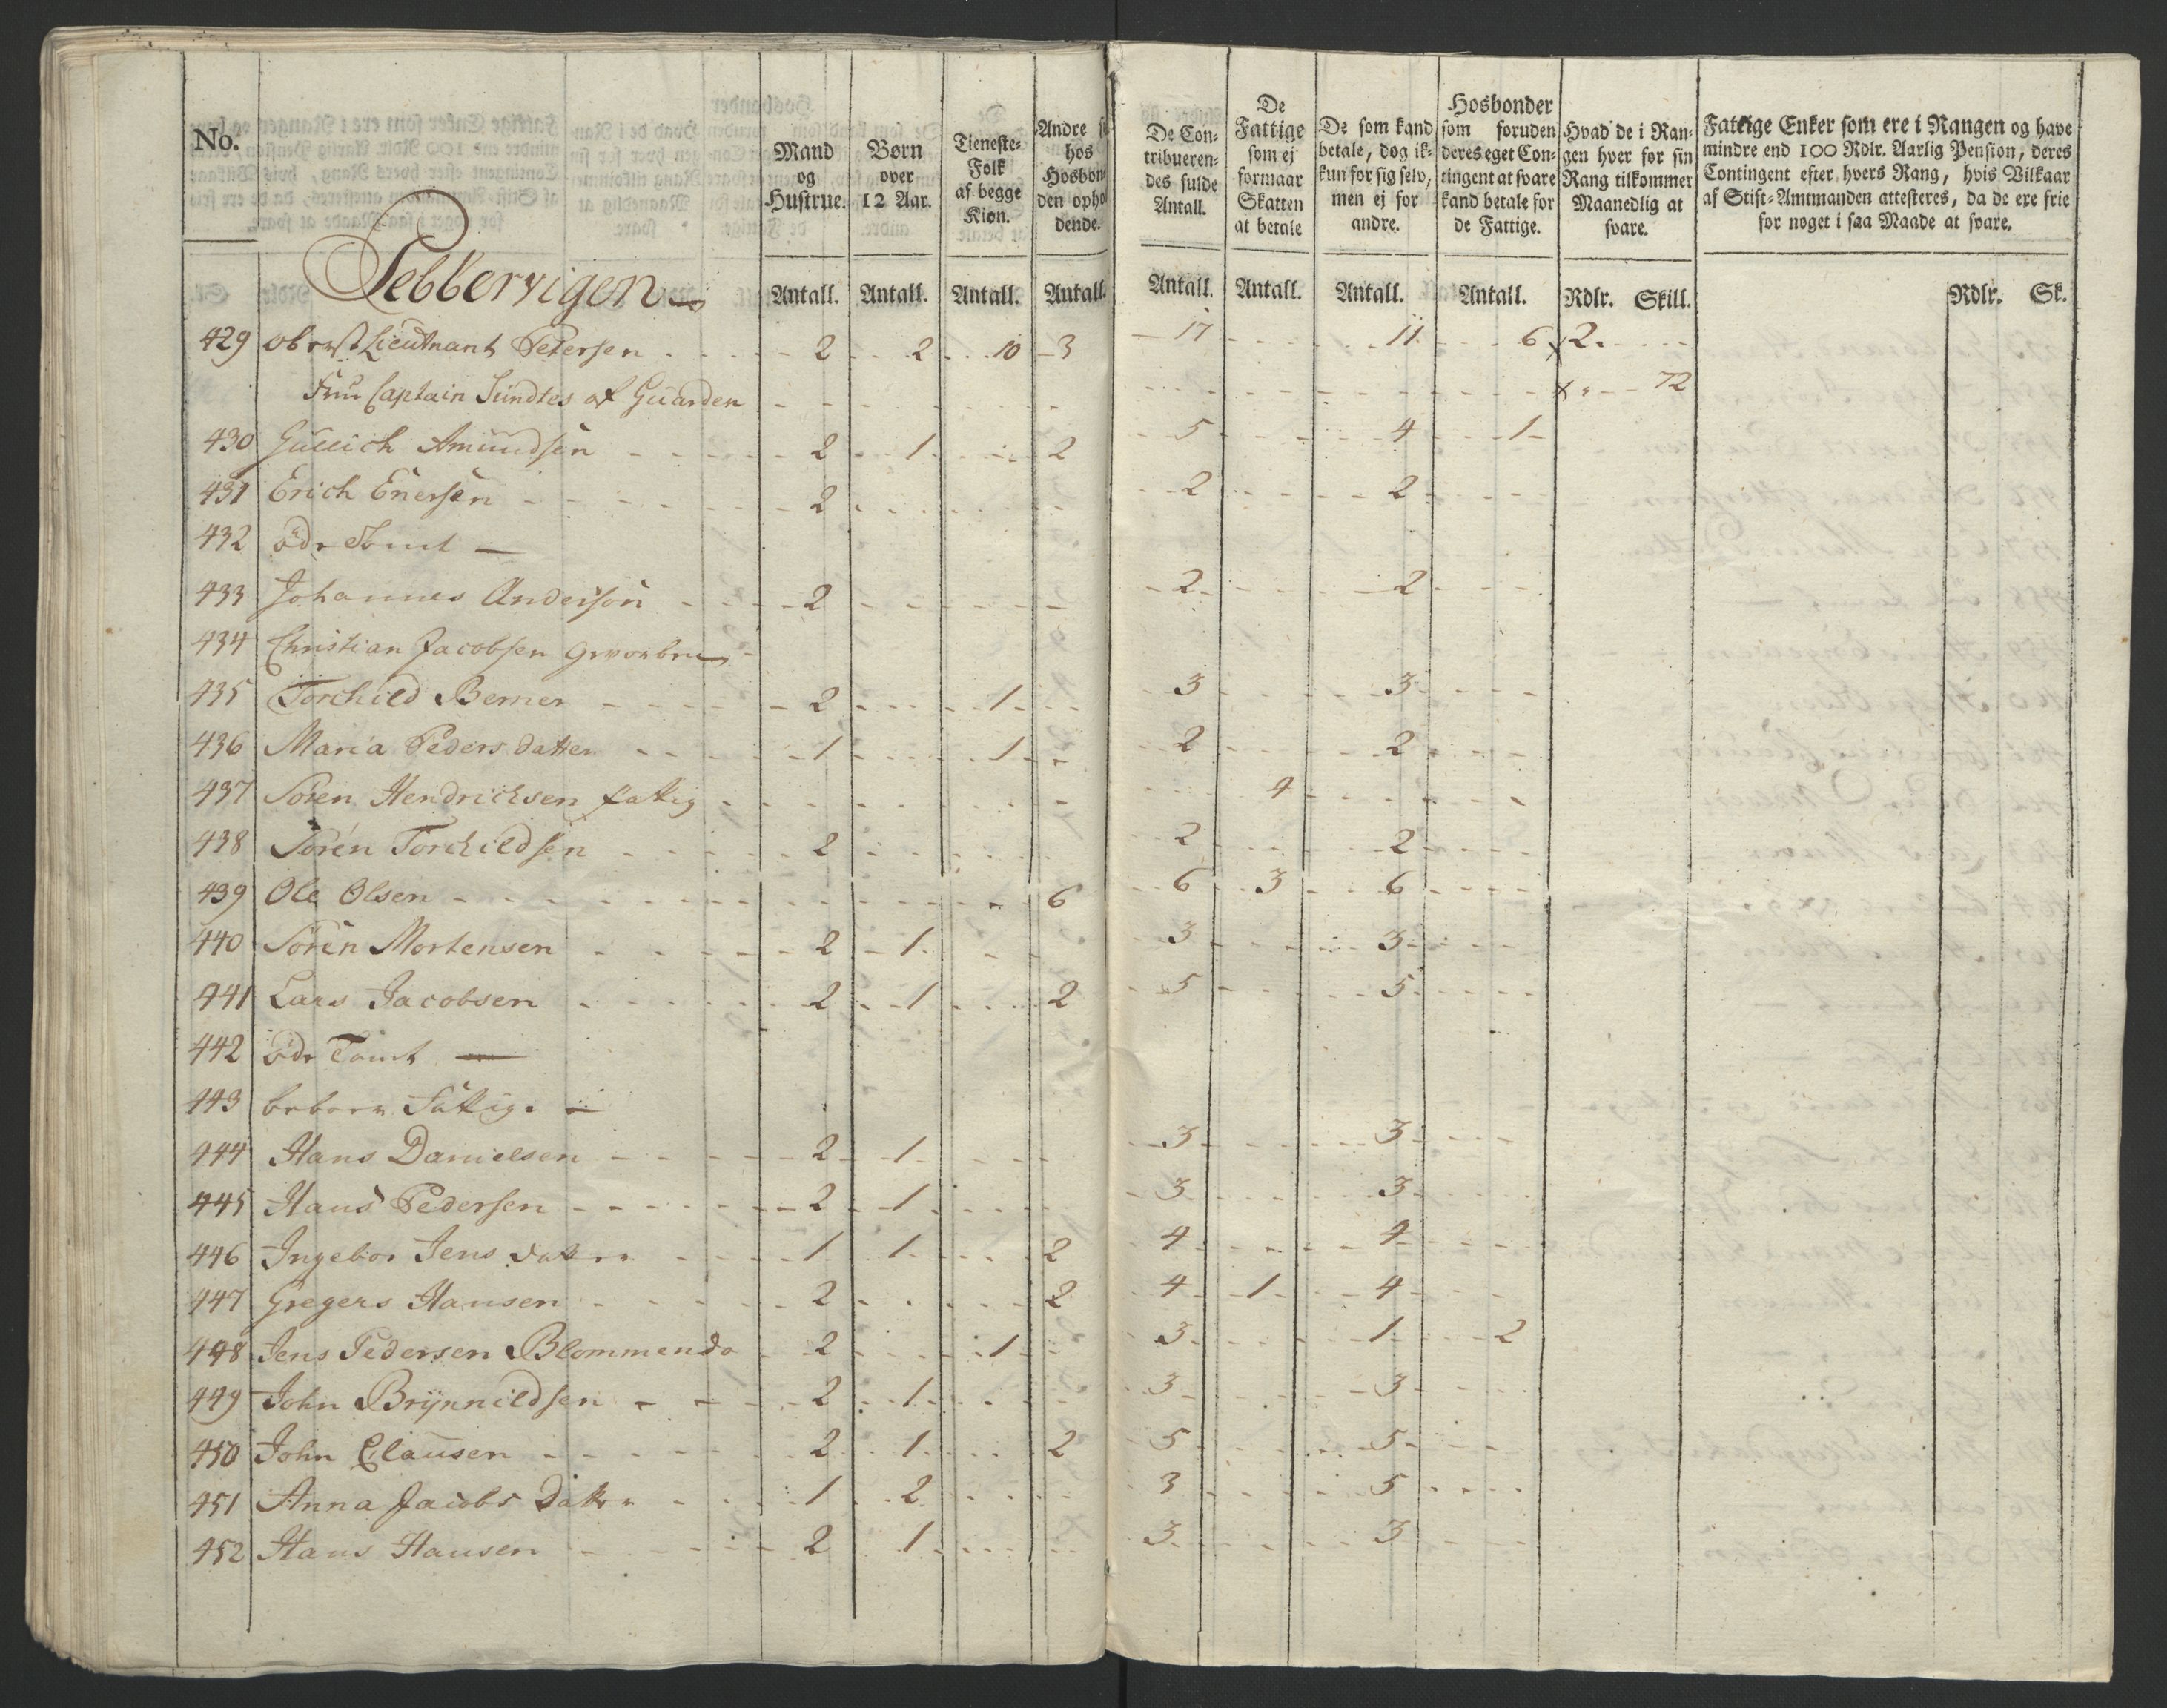 No.
Mand og Hustrue.
Børn over 12 Aar.
Tieneste-Folk af begge Kiøn.
Andre hos Hosbon den opho dende.
De Contribuerendes fulde Antall.
De Fattige som ej formaar Skatten at betale
De som kand betale, dog ikkun for sig selv, men ej for andre.
Hosbonder som foruden deres eget Contingent at svare kand betale for de Fattige.
Hvad de i Rangen hver for sin Rang tilkommer Maanedlig at svare.
Fattige Enker som ere i Rangen og have mindre end 100 Rdlr. Aarlig Pension, deres Contingent efter hvers Rang, hvis Vilkaar af Stift-Amtmanden attesteres, da de ere frie for noget i saa Maade at svare.
Pebbervigen
Antall. Antall. Antall. Antall. Antall. Antall. Antall. Antall. Rdlr. Skill. Rdlr. Sk.
429 oberst Lieutnant Petersen 2 2 10 3 17 11 6 x 2.
Fru Captain Sundtes af Guarden x " 72
430 Gullich Amundsen 2 1 2 5 4 1
431 Erich Enersen 2 2 2
432 öde Tomt
433 Johannes Andersön 2 2 2
434 Christian Jacobsen
435 Torchild Berner 2 1 3 3
436 Maria Peders datter 1 1 2 2
437 Sören Hendrichsen fattig 4
438 Sören Torchildsen 2 2 2
439 Ole Olsen 6 6 3 6
440 Sören Mortensen 2 1 3 3
441 Lars Jacobsen 2 1 2 5 5
442 öde Tomt
443 beboer Fattige
444 Hans Danielsen 2 1 3 3
445 Hans Pedersen 2 1 3 3
446 Ingebor Jens datter 1 1 2 4 4
447 Gregers Hansen 2 2 4 1 4
448 Jens Pedersen Blommendo 2 1 3 1 2
449 John Brÿnnildsen 2 1 3 3
450 John Clausen 2 1 2 5 5
451 Anna Jacobs Datter 1 2 3 5
452 Hans Hansen 2 1 3 3